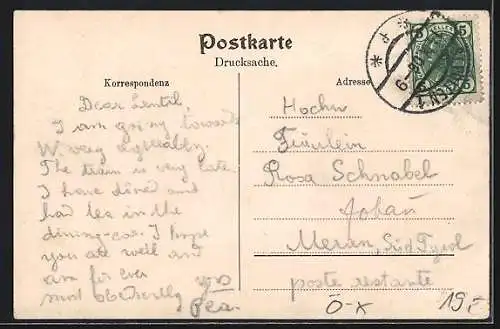 Postkarte
Drucksache.
Korrespondenz
Adresse
Dear Lentil,
I am going towards
W. very
The train is very late.
I have dined and
had tea in the
dining-car. I hope
you are well and
am for ever
yrs
most obediently
Pea.
Hochw
Fräulein
Rosa Schnabel
Meran, Süd Tyrol
poste restante
5 5
Ö-X
19.-